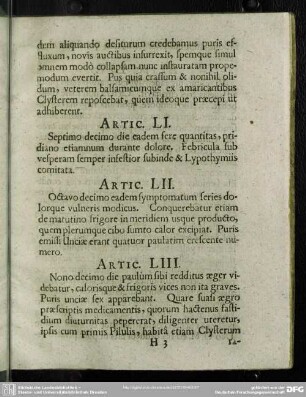 dem aliquando desiturum credebamus puris ef-
fluxum, novis auctibus insurrexit, spemque simul
amnem modò collapsam nunc instauratam prope-
modum evertit. Pus quia crassum & nonihil oli-
dum, veterem balsamicumque ex amaricantibus
Clysterem reposcebat, quem ideoque præcepi ut
adhiberent.
ARTIC. LI.
Septimo decimo die eadem fere quantitas, pri-
diano etiamnum durante dolore. Febricula sub
vesperam semper infestior subinde & Lypothymiis
comitata.
ARTIC. LII.
Octavo decimo eadem symptomatum series do-
lorque vulneris modicus. Conquerebatur etiam
de matutino frigore in meridiem usque producto,
quem plerumque cibo sumto calor excipiat. Puris
emissi Unciæ erant quatuor paulatim crescente nu-
mero.
ARTIC. LIII.
Nono decimo die paulùm sibi redditus æger vi-
debatur, calorisque & frigoris vices non ita graves.
Puris unciæ sex apparebant. Quare suasi ægro
præscriptis medicamentis, quorum hactenus fasti-
dium diuturnitas pepererat, diligenter uteretur,
ipsis cum primis Pilulis, habitâ etiam Clysterum
H 3